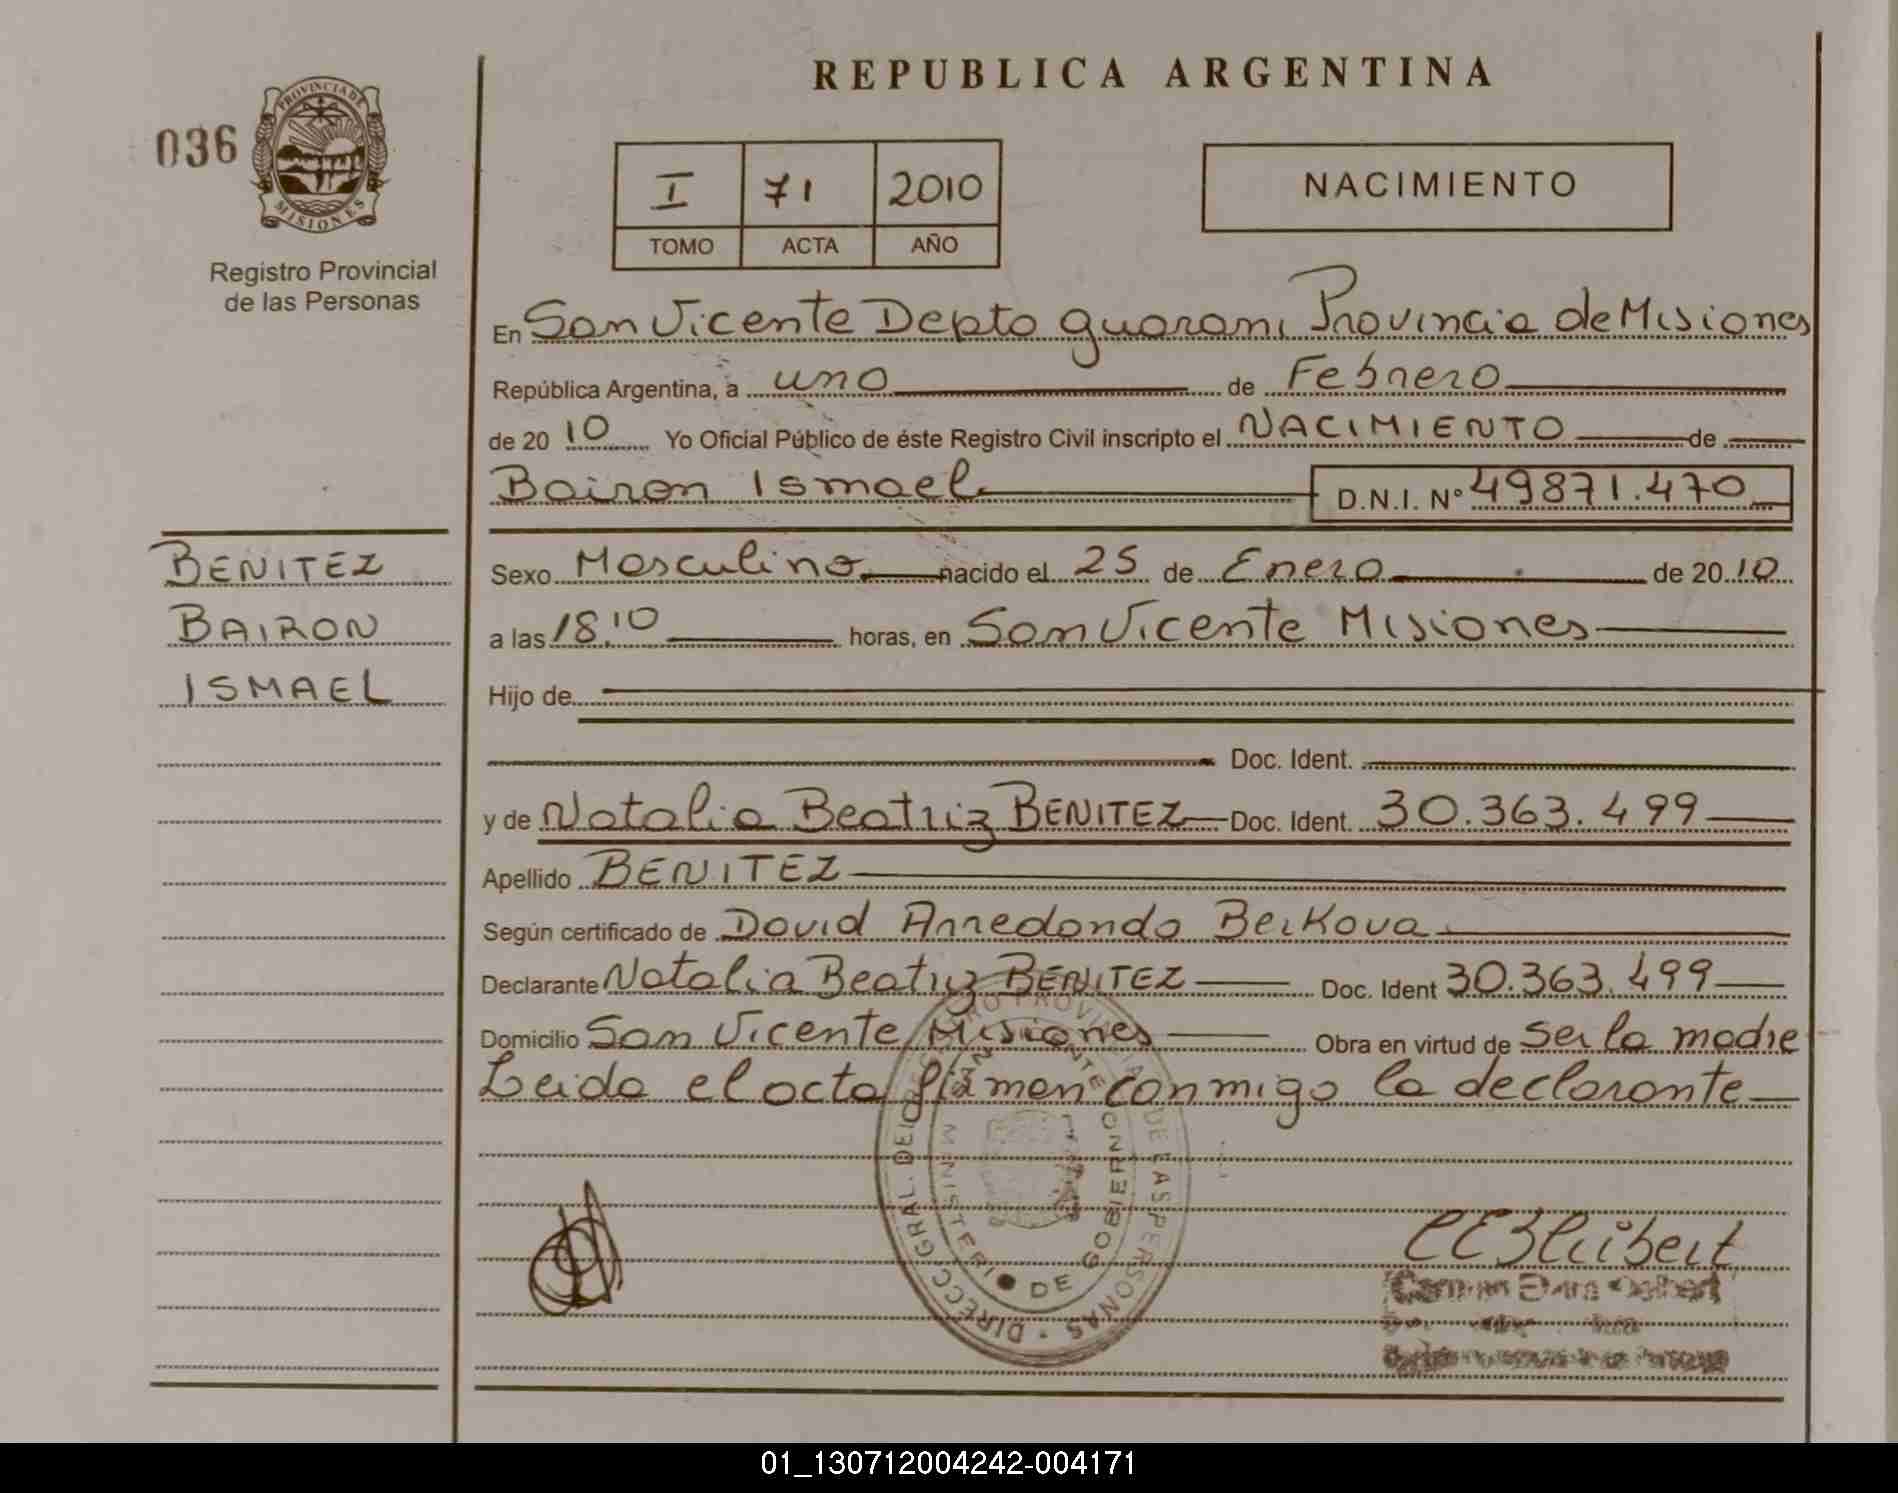 REPUBLICA ARGENTINA
036
PROVINCIA DE
MISIONES
Registro Provincial
de las Personas
I 71 2010
TOMO ACTA AÑO
NACIMIENTO
En San Vicente Depto guarani Provincia de Misiones
República Argentina, a uno de Febrero
de 2010 Yo Oficial Público de éste Registro Civil inscripto el NACIMIENTO de
Bairon Ismael D.N.I. Nº 49871.470
BENITEZ
BAIRON
ISMAEL
Sexo Masculino nacido el 25 de Enero de 2010
a las 18.10 horas, en San Vicente Misiones
Hijo de
Doc. Ident.
y de Natalia Beatriz BENITEZ Doc. Ident. 30.363.499
Apellido BENITEZ
Según certificado de David Arredondo Beikova
Declarante Natalia Beatriz BENITEZ Doc. Ident 30.363.499
Domicilio San Vicente Misiones Obra en virtud de Ser la madre
Leida el acta firman conmigo la declarante
DIRECC. GRAL. DEL REGISTRO PROVINCIAL DE LAS PERSONAS
MINISTERIO DE GOBIERNO
SAN VICENTE
01_130712004242-004171